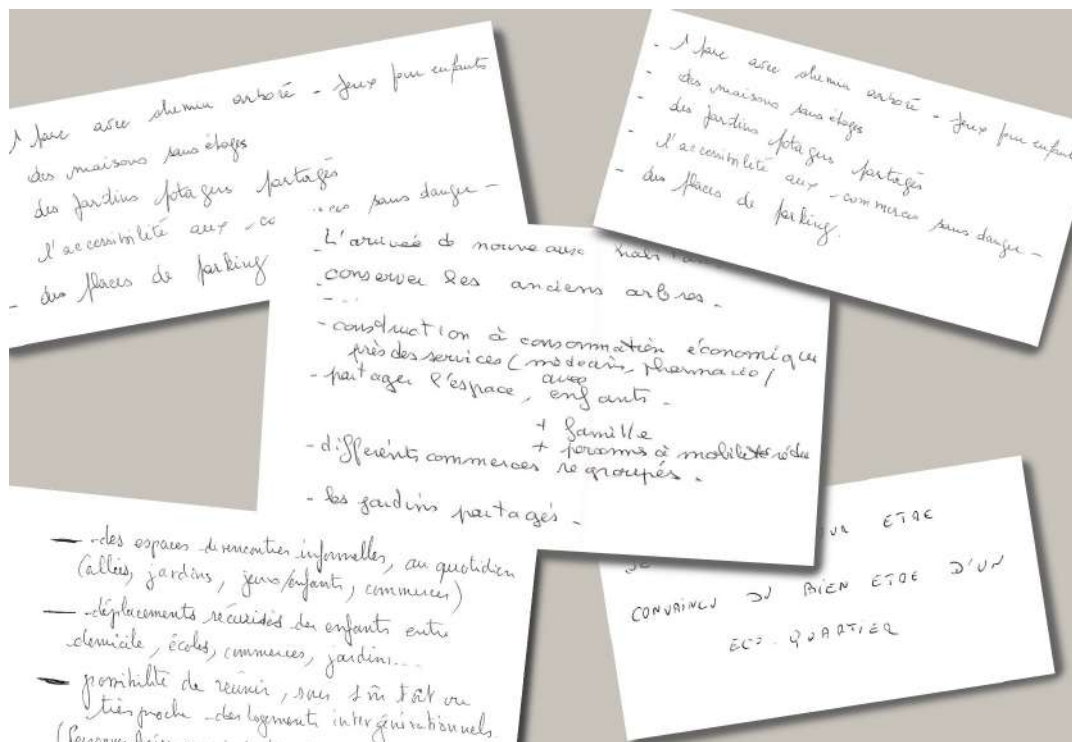 1 parc avec chemin arboré - Jeux pour enfants
des maisons sans étages
des jardins potagers partagés
l'accessibilité aux sans danger -
- des places de parking
- 1 parc avec chemin arboré - Jeux pour enfants
- des maisons sans étages
- des jardins potagers partagés
- l'accessibilité aux commerces sans danger -
- des places de parking.
- L'arrivée de nouveaux
- conserver les anciens arbres -
- construction à consommation économique
près des services (médecin, pharmacie/
- partager l'espace, avec enfants -
+ famille
+ à mobilité
- différents commerces regroupés -
- les jardins partagés -
- des espaces de rencontres informelles, au quotidien
(allées, jardins, jeux/enfants, commerces)
- déplacements sécurisés des enfants entre
domicile, écoles, commerces, jardins...
- possibilité de réunir, sous 1 toit ou
très proche des logements intergénérationnels
ETRE
CONVAINCU DU BIEN ETRE D'UN
ECO-QUARTIER